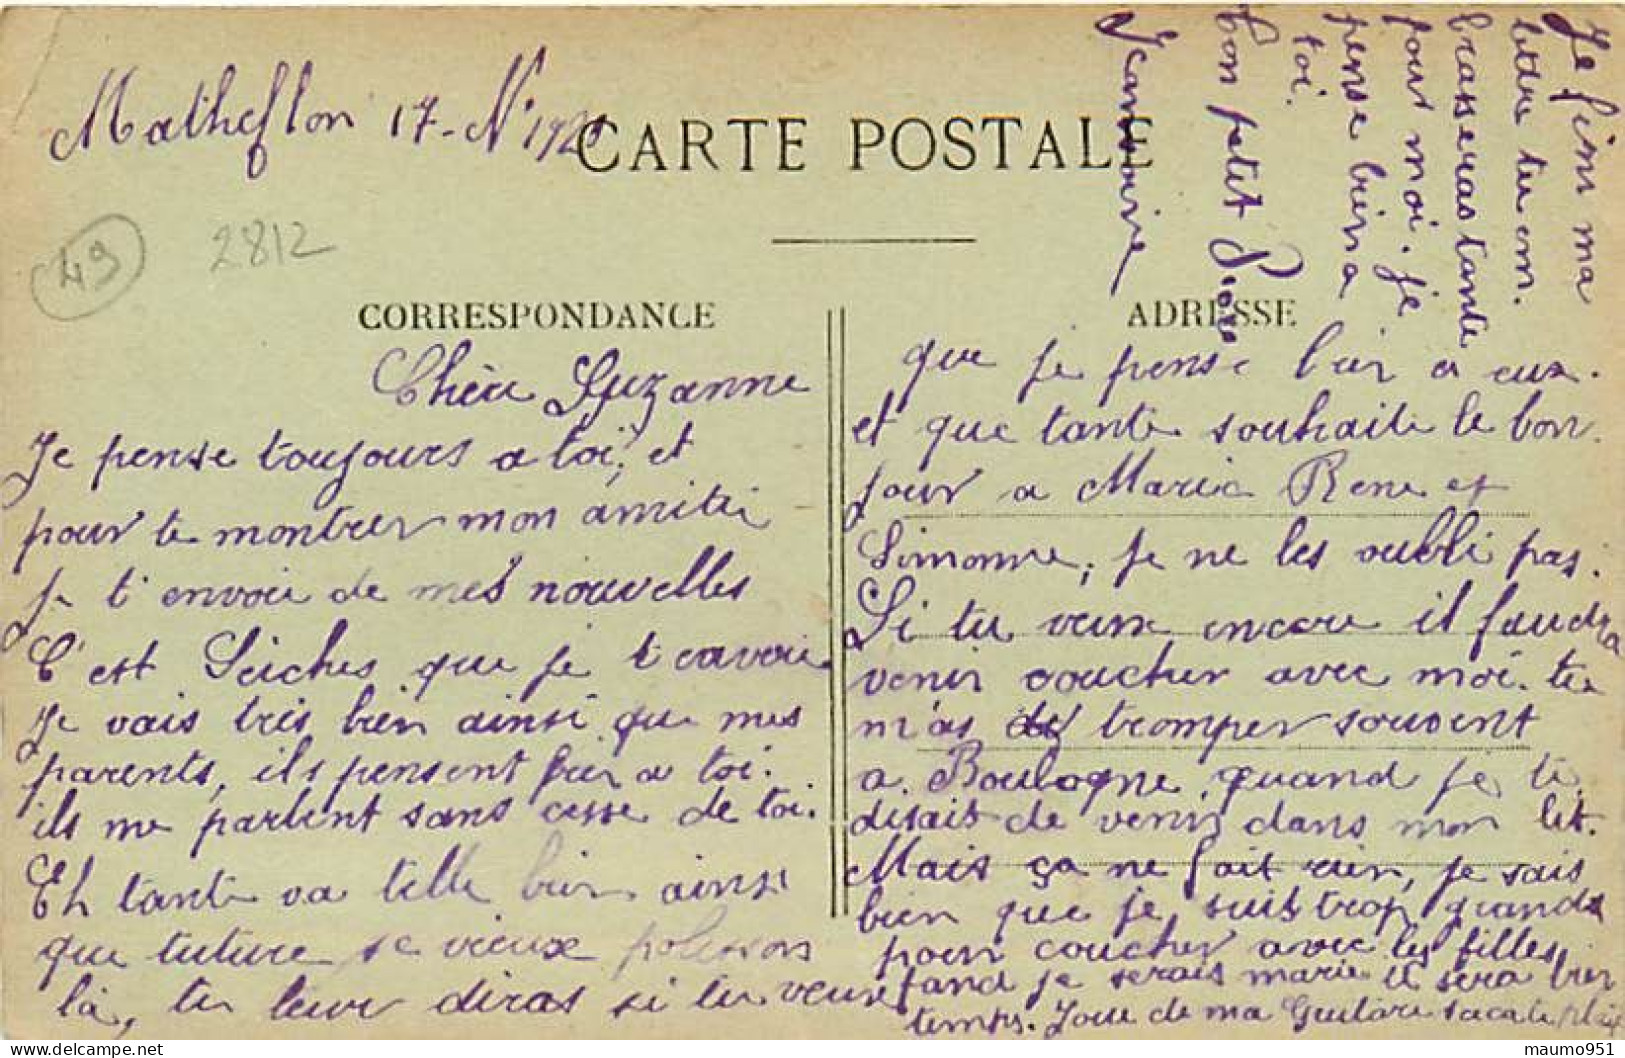 Matheflon 17-N' 1920
CARTE POSTALE
49
2812
CORRESPONDANCE
ADRESSE
Chère Suzanne
Je pense toujours a toi, et
pour te montrer mon amitié
je t'envoie de mes nouvelles
C'est Seiches que je
Je vais très bien ainsi que mes
parents, ils pensent bien a toi.
ils me parlent sans cesse de toi.
Eh tante va telle bien ainsi
que tuture se vieux polisson
là, tu leur diras si tu veux
que je pense bien a eux.
et que tante souhaite le bon
jour a Maria Rene et
Simonne, je ne les oubli pas.
Si tu veux encore il faudra
venir coucher avec moi. tu
m'as tromper souvent
a Boulogne quand je te
disait de venir dans mon lit.
Mais ça ne fait rien, je sais
bien que je suis trop grande
pour coucher avec les filles,
cand je serais marie il sera bien
temps. Joue de ma Guitare sa ca te plai
Je fini ma
lettre tu em.
brasseras tante
pour moi. je
pense bien a
toi.
Ton petit Pierre